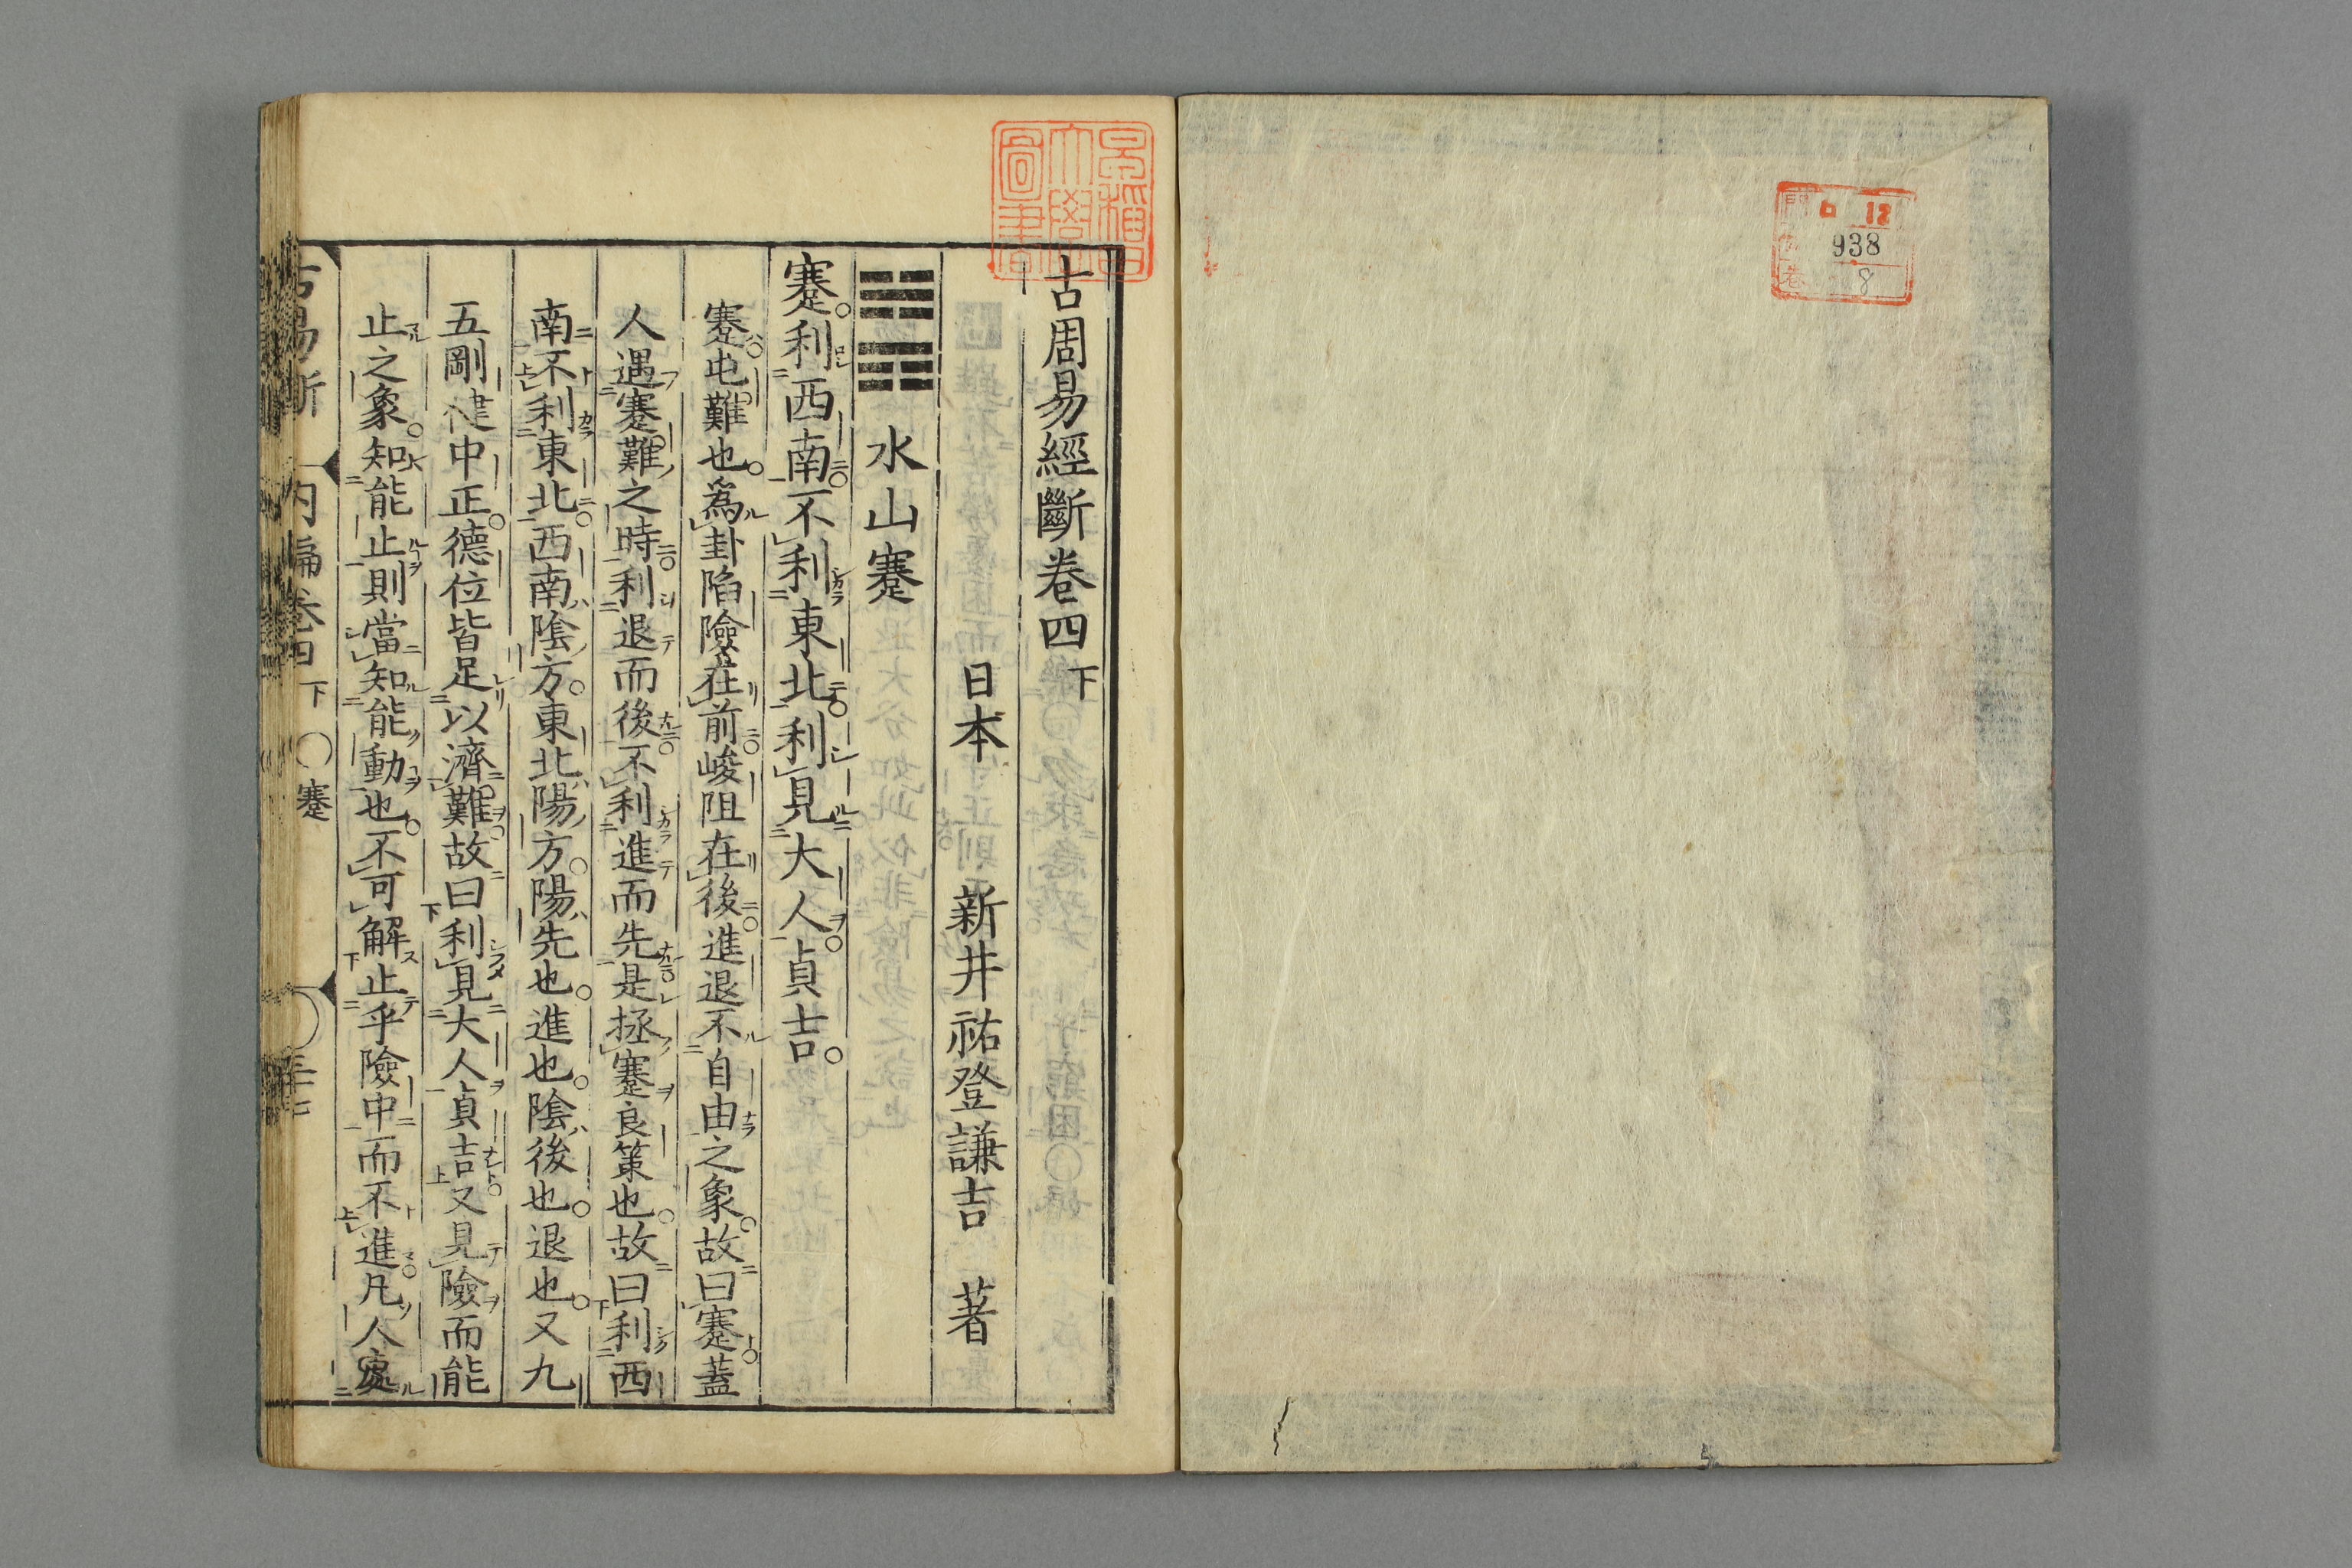 門 ロ 12
938
卷 8
早稲田大學圖書
古周易經斷卷四下
日本 新井祐登謙吉 著
水山蹇
蹇利西南不利東北利見大人貞吉
蹇屯難也為卦陷險在前峻阻在後進退不自由之象故曰蹇蓋
人遇蹇難之時利退而後不利進而先是拯蹇良策也故曰利西
南不利東北西南陰方東北陽方陽先也進也陰後也退也又九
五剛健中正德位皆足以濟難故曰利見大人貞吉又見險而能
止之象知能止則當知能動也不可解止乎險中而不進凡人處
古易斷 內編卷四 下 ○蹇